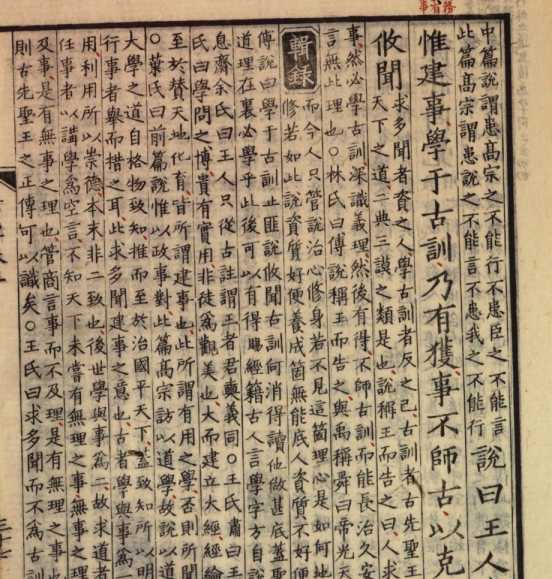 中篇說謂患高宗之不能行不患臣之不能言
此篇高宗謂患說之不能言不患我之不能行
說曰王人
惟建事學于古訓乃有獲事不師古以克
攸聞
求多聞者資之人學古訓者反之己古訓者古先聖王
天下之道二典三謨之類是也說稱王而告之曰人求
事然必學古訓深識義理然後有得不師古訓而能長治久安
言無此理也○林氏曰傳說稱王而告之與禹稱舜曰帝光天
輯錄
而今人只管說治心修身若不見這箇理心是如何地
修若如此說資質好便養成箇無能底人資質不好便
傳說曰學于古訓止匪說攸聞古訓何消得讀他做甚底蓋聖
道理在裏必學乎此後可以有得賜經籍古人言學字方自說
息齋余氏曰王人只從古註謂王者君奭義同○王氏肅曰王
氏曰學問之博貴有實用非徒爲觀美也大而建立大經經綸
至於贊天地化育皆所謂建事也此所謂有用之學否則所聞
○葉氏曰前篇說惟以政事對此篇高宗訪以道學故說以道
大學之道自格物致知推而至於治國平天下蓋致知所以明
行事者舉而措之耳此求多聞建事之意也古者學與事爲一
用利用所以崇德本末非二致也後世學與事爲二故求道者
任事者以講學爲空言不知天下未嘗有無理之事無事之理
及事是有無事之理也管商言事而不及理是有無理之事也
則古先聖王之正傳可以識矣○王氏曰求多聞而不爲古訓